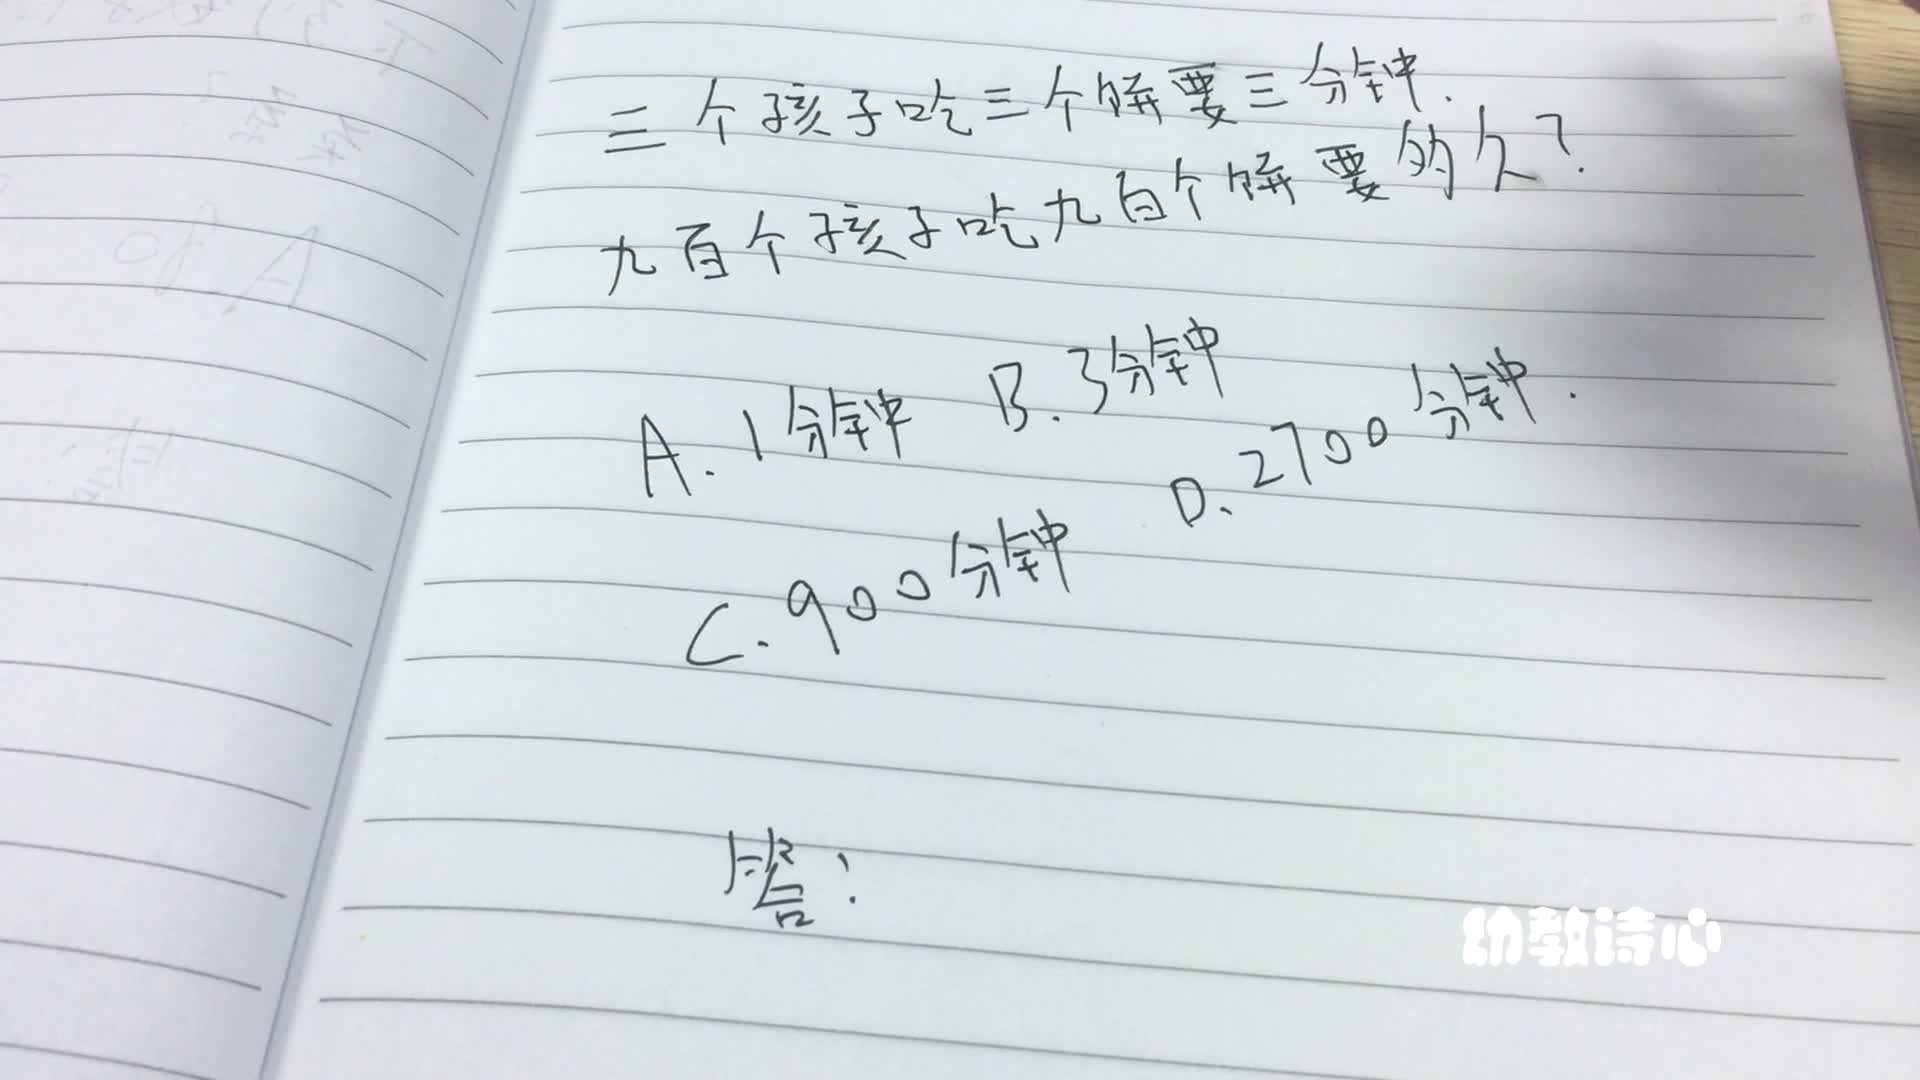 三个孩子吃三个饼要三分钟.
九百个孩子吃九百个饼要的久?
A.1分钟 B.3分钟
C.900分钟 D.2700分钟.
答:
幼教诗心